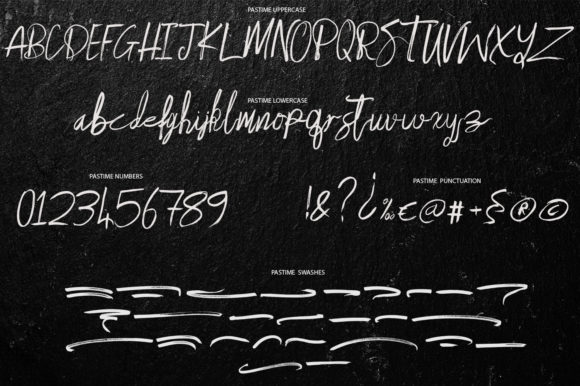 PASTIME UPPERCASE
ABCDEFGHIJKLMNOPQRSTUVWXYZ
PASTIME LOWERCASE
abcdefghijklmnopqrstuvwxyz
PASTIME NUMBERS
0123456789
PASTIME PUNCTUATION
!&?¿‰€@#+{®©
PASTIME SWASHES